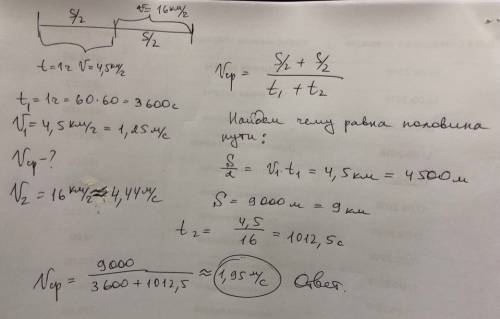 S/2 V=16км/г
S/2
t=1г V=4,5км/г
t₁=1г=60·60=3600с
V₁=4,5км/г=1,25м/с
Vср-?
V₂=16км/г≈4,44м/с
Vср = (S/2 + S/2)/(t₁ + t₂)
Найдем чему равна половина
пути:
S/2 = V₁·t₁ = 4,5км = 4500м
S = 9000м = 9км
t₂ = 4,5/16 = 1012,5с
Vср = 9000/(3600+1012,5) ≈ 1,95м/с Ответ.